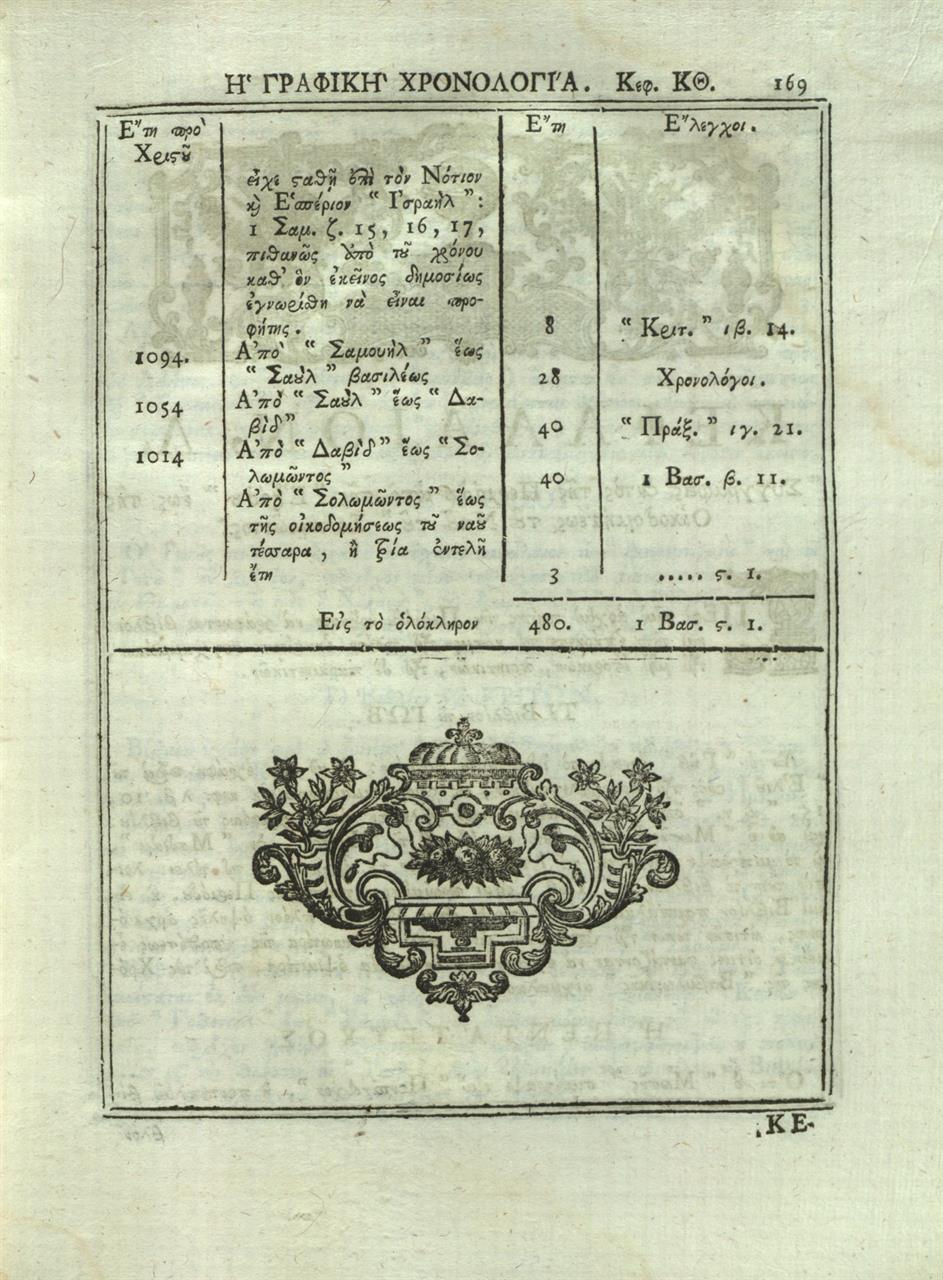 Η' ΓΡΑΦΙΚΗ' ΧΡΟΝΟΛΟΓΙ'Α. Κεφ. ΚΘ. 169
Ε"τη πρὸ Ε"τη Ε"λεγχοι.
Χριστοῦ
εἶχε σταθῆ ἐπὶ τὸν Νότιον
κỳ Ἑσπέριον “ Ἰσραὴλ ” :
1 Σαμ. ζ. 15, 16, 17,
πιθανῶς ἀπὸ τοῦ χρόνου
καθ' ὃν ἐκεῖνος δημοσίως
ἐγνωρίθη νὰ εἶναι προ-
φήτης. 8 “ Κριτ. ” ιβ. 14.
1094. Α'πὸ “ Σαμουὴλ ” ἕως
“ Σαοὺλ ” βασιλέως 28 Χρονολόγοι.
1054 Α'πὸ “ Σαοὺλ ” ἕως “ Δα-
βὶδ ” 40 “ Πράξ. ” ιγ. 21.
1014 Α'πὸ “ Δαβὶδ ” ἕως “ Σο-
λωμῶντος ” 40 1 Βασ. β. 11.
Α'πὸ “ Σολωμῶντος ” ἕως
τῆς οἰκοδομήσεως τοῦ ναοῦ
τέσσαρα, ἢ τρία ἐντελῆ
ἔτη 3 ..... ς. 1.
Εἰς τὸ ὁλόκληρον 480. 1 Βασ. ς. 1.
ΚΕ-